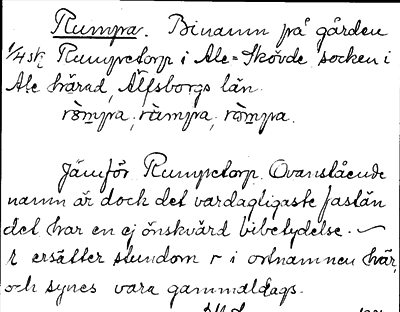 Rumpra. Binamn på gården
1/4 sk. Rumpretorp i Ale-Skövde socken i
Ale härad, Älfsborgs län.
rɷ̀mpra, ràmpra, rɷ̀mpra.
Jämför Rumpretorp. Ovanstående
namn är dock det vardagligaste fastän
det har en ej önskvärd bibetydelse. –
ɽ ersätter stundom r i ortnamnen här,
och synes vara gammaldags.